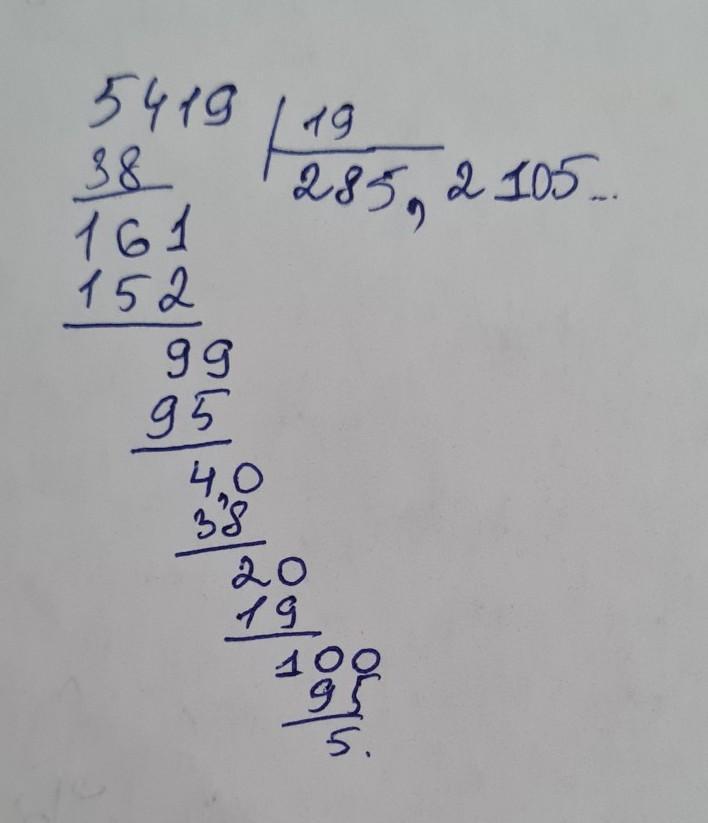 5419 | 19
38 285,2105...
161
152
99
95
4,0
3,8
20
19
100
95
5.